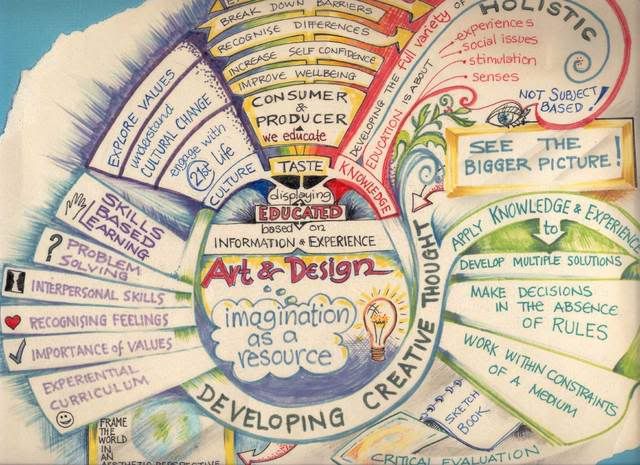 BREAK DOWN BARRIERS
RECOGNISE DIFFERENCES
INCREASE SELF CONFIDENCE
IMPROVE WELLBEING
CONSUMER
&
PRODUCER
we educate
TASTE
displaying
EDUCATED
based on
INFORMATION & EXPERIENCE
Art & Design
imagination
as a
resource
DEVELOPING CREATIVE THOUGHT
EXPLORE VALUES
understand
CULTURAL CHANGE
engage with
21st Life
CULTURE
KNOWLEDGE
DEVELOPING THE full variety OF
EDUCATION IS ABOUT
HOLISTIC
experiences
social issues
stimulation
senses
NOT SUBJECT
BASED!
SEE THE
BIGGER PICTURE!
APPLY KNOWLEDGE & EXPERIENCE
to
DEVELOP MULTIPLE SOLUTIONS
MAKE DECISIONS
IN THE ABSENCE
OF RULES
WORK WITHIN CONSTRAINTS
OF A MEDIUM
SKETCH
BOOK
CRITICAL EVALUATION
SKILLS
BASED
LEARNING
?
PROBLEM
SOLVING
INTERPERSONAL SKILLS
RECOGNISING FEELINGS
IMPORTANCE of VALUES
EXPERIENTIAL
CURRICULUM
FRAME
THE
WORLD
IN
AN
AESTHETIC PERSPECTIVE